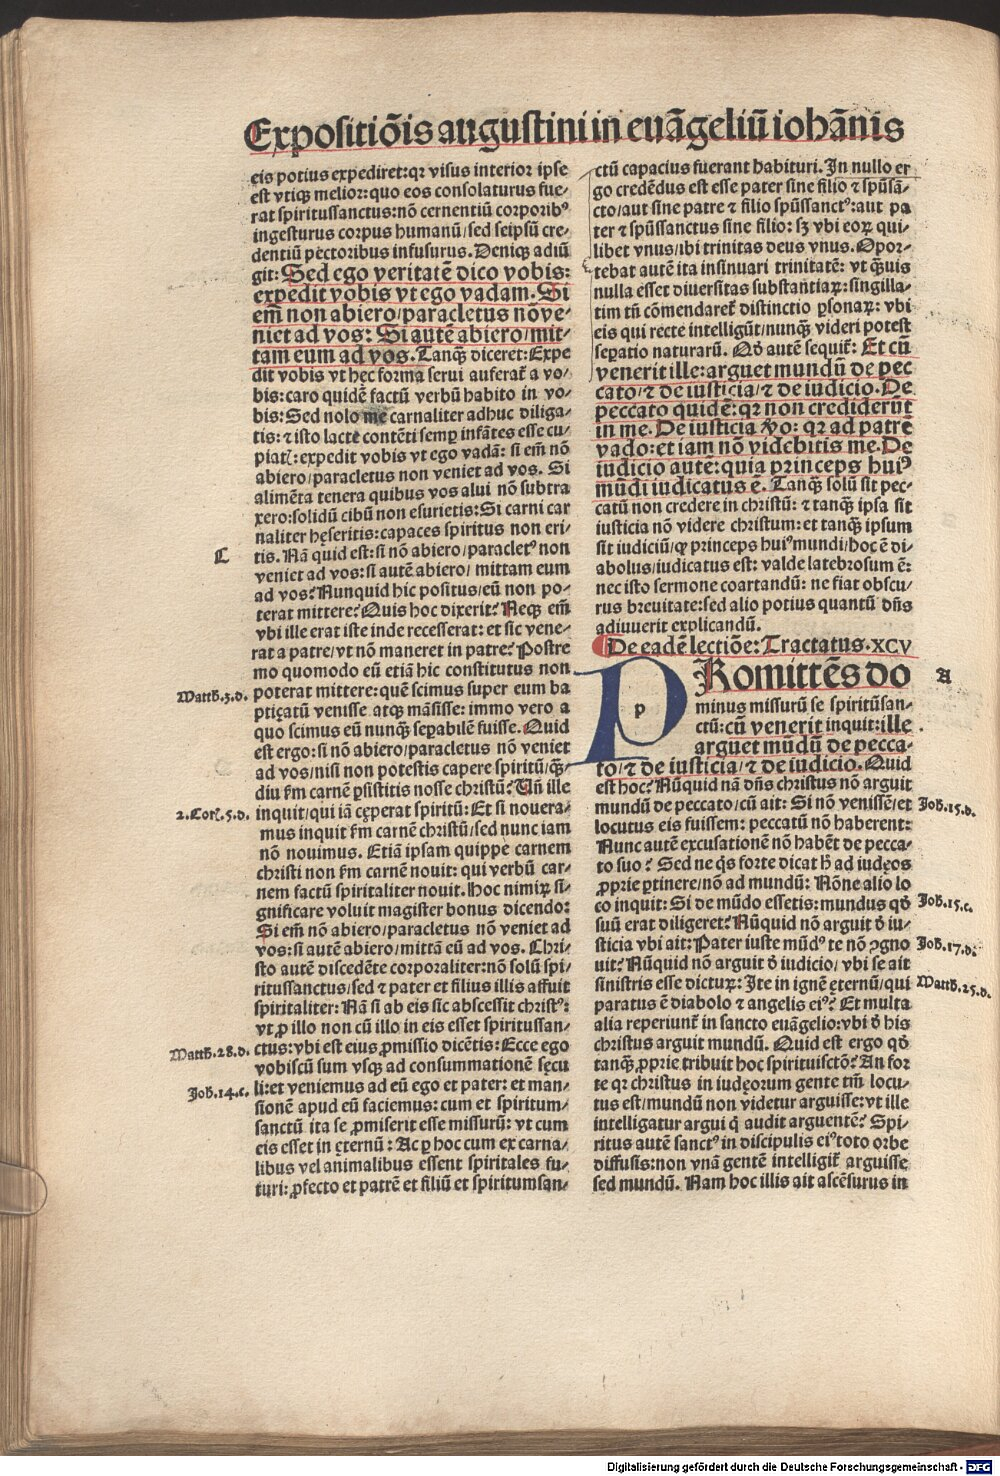 Expositiõis augustini in euãgeliũ iohãnis
eis potius expediret: qr visus interior ipse
est vtiqꝫ melior: quo eos consolaturus fue/
rat spiritussanctus: nõ cernentiũ corporibꝰ
ingesturus corpus humanũ/ sed seipsũ cre/
dentiũ pectoribus infusurus. Deniqꝫ adiũ
git: Sed ego veritatẽ dico vobis:
expedit vobis vt ego vadam. Si
em̃ non abiero/ paracletus nõ ve/
niet ad vos: Si autẽ abiero/ mit/
tam eum ad vos. Tanqꝫ̃ diceret: Expe
dit vobis vt hęc forma serui auferat̃ a vo/
bis: caro quidẽ factũ verbũ habito in vo/
bis: Sed nolo me carnaliter adhuc diliga/
tis: ⁊ isto lacte contẽti semꝑ infãtes esse cu/
piat͛: expedit vobis vt ego vadã: si em̃ nõ
abiero/ paracletus non veniet ad vos. Si
alimẽta tenera quibus vos alui nõ subtra
xero: solidũ cibũ non esurietis: Si carni car
naliter hęseritis: capaces spiritus non eri/
C
tis. Nã quid est: si nõ abiero/ paracletꝰ non
veniet ad vos: si autẽ abiero/ mittam eum
ad vos? Nunquid hic positus/ eũ non po/
terat mittere? Quis hoc dixerit? Neqꝫ em̃
vbi ille erat iste inde recesserat: et sic vene/
rat a patre/ vt nõ maneret in patre? Postre
mo quomodo eũ etiã hic constitutus non
Matth.3.d.
poterat mittere: quẽ scimus super eum ba
ptiçatũ venisse atqꝫ mãsisse: immo vero a
quo scimus eũ nunqꝫ̃ seꝑabilẽ fuisse. Quid
est ergo: si nõ abiero/ paracletus nõ veniet
ad vos/ nisi non potestis capere spiritũ/ qꝫ̃/
diu fm carnẽ ꝑsistitis nosse christũ? Vñ ille
2.Cor͛.5.d.
inquit/ qui iã cęperat spiritũ: Et si nouera/
mus inquit fm carnẽ christũ/ sed nunc iam
nõ nouimus. Etiã ipsam quippe carnem
christi non fm carnẽ nouit: qui verbũ car/
nem factũ spiritaliter nouit. Hoc nimiꝝ si/
gnificare voluit magister bonus dicendo:
Si em̃ nõ abiero/ paracletus nõ veniet ad
vos: si autẽ abiero/ mittã eũ ad vos. Chri/
sto autẽ discedẽte corporaliter: nõ solũ spi/
ritussanctus/ sed ⁊ pater et filius illis affuit
spiritaliter: Nã si ab eis sic abscessit christꝰ:
vt ꝓ illo non cũ illo in eis esset spiritussan/
Matth.28.d.
ctus: vbi est eius ꝓmissio dicẽtis: Ecce ego
vobiscũ sum vsqꝫ ad consummationẽ sęcu
Joh.14.c.
li: et veniemus ad eũ ego et pater: et man/
sionẽ apud eũ faciemus: cum et spiritum/
sanctũ ita se ꝓmiserit esse missurũ: vt cum
eis esset in ęternũ: Ac ꝑ hoc cum ex carna/
libus vel animalibus essent spiritales fu/
turi: ꝓfecto et patrẽ et filiũ et spiritumsan/
ctũ capacius fuerant habituri. In nullo er
go credẽdus est esse pater sine filio ⁊ spũsã/
cto/ aut sine patre ⁊ filio spũssanctꝰ: aut pa
ter ⁊ spũssanctus sine filio: sꝫ vbi eoꝝ qui/
libet vnus/ ibi trinitas deus vnus. Opor/
tebat autẽ ita insinuari trinitatẽ: vt qꝫ̃uis
nulla esset diuersitas substantiaꝝ: singilla/
tim tñ cõmendaret̃ distinctio ꝑsonaꝝ: vbi
eis qui recte intelligũt/ nunqꝫ̃ videri potest
seꝑatio naturarũ. Qđ autẽ sequit̃: Et cũ
venerit ille: arguet mundũ de pec
cato/ ⁊ de iusticia/ ⁊ de iudicio. De
peccato quidẽ: qr non crediderũt
in me. De iusticia ṽo: qr ad patrẽ
vado: et iam nõ videbitis me. De
iudicio autẽ: quia princeps huiꝰ
mũdi iudicatus ẽ. Tanqꝫ̃ solũ sit pec/
catũ non credere in christũ: ⁊ tanqꝫ̃ ipsa sit
iusticia nõ videre christum: et tanqꝫ̃ ipsum
sit iudiciũ/ qꝙ princeps huiꝰ mundi/ hoc ẽ di/
abolus/ iudicatus est: valde latebrosum ẽ:
nec isto sermone coartandũ: ne fiat obscu/
rus breuitate: sed alio potius quantũ dñs
adiuuerit explicandũ.
De eadẽ lectiõe: Tractatus. XCV
A
PRomittẽs do
minus missurũ se spiritũsan/
ctũ: cũ venerit inquit: ille
arguet mũdũ de pecca/
to/ ⁊ de iusticia/ ⁊ de iudicio. Quid
est hoc? Nũquid nã dñs christus nõ arguit
mundũ de peccato/ cũ ait: Si nõ venissẽ/ et
Joh.15.d.
locutus eis fuissem: peccatũ nõ haberent:
Nunc autẽ excusationẽ nõ habẽt de pecca/
to suo? Sed ne q̃s forte dicat ħ ad iudęos
ꝓprie ꝑtinere/ nõ ad mundũ: Nõne alio lo
co inquit: Si de mũdo essetis: mundus qđ
Joh.15.c.
suũ erat diligeret? Nũquid nõ arguit đ iu/
sticia vbi ait: Pater iuste mũdꝰ te nõ ꝯgno
Joh.17.d.
uit? Nũquid nõ arguit đ iudicio/ vbi se ait
sinistris esse dictuꝝ: Ite in ignẽ ęternũ/ qui
Matth.25.d.
paratus ẽ diabolo ⁊ angelis eiꝰ? Et multa
alia reperiunt̃ in sancto euãgelio: vbi đ his
christus arguit mundũ. Quid est ergo qđ
tanqꝫ̃ ꝓprie tribuit hoc spirituisctõ? An for
te qr christus in iudęorum gente tm̃ locu/
tus est/ mundũ non videtur arguisse: vt ille
intelligatur argui q̃ audit arguentẽ? Spi/
ritus autẽ sanctꝰ in discipulis eiꝰ toto orbe
diffusis: non vnã gentẽ intelligit̃ arguisse
sed mundũ. Nam hoc illis ait ascẽsurus in
Digitalisierung gefördert durch die Deutsche Forschungsgemeinschaft - DFG